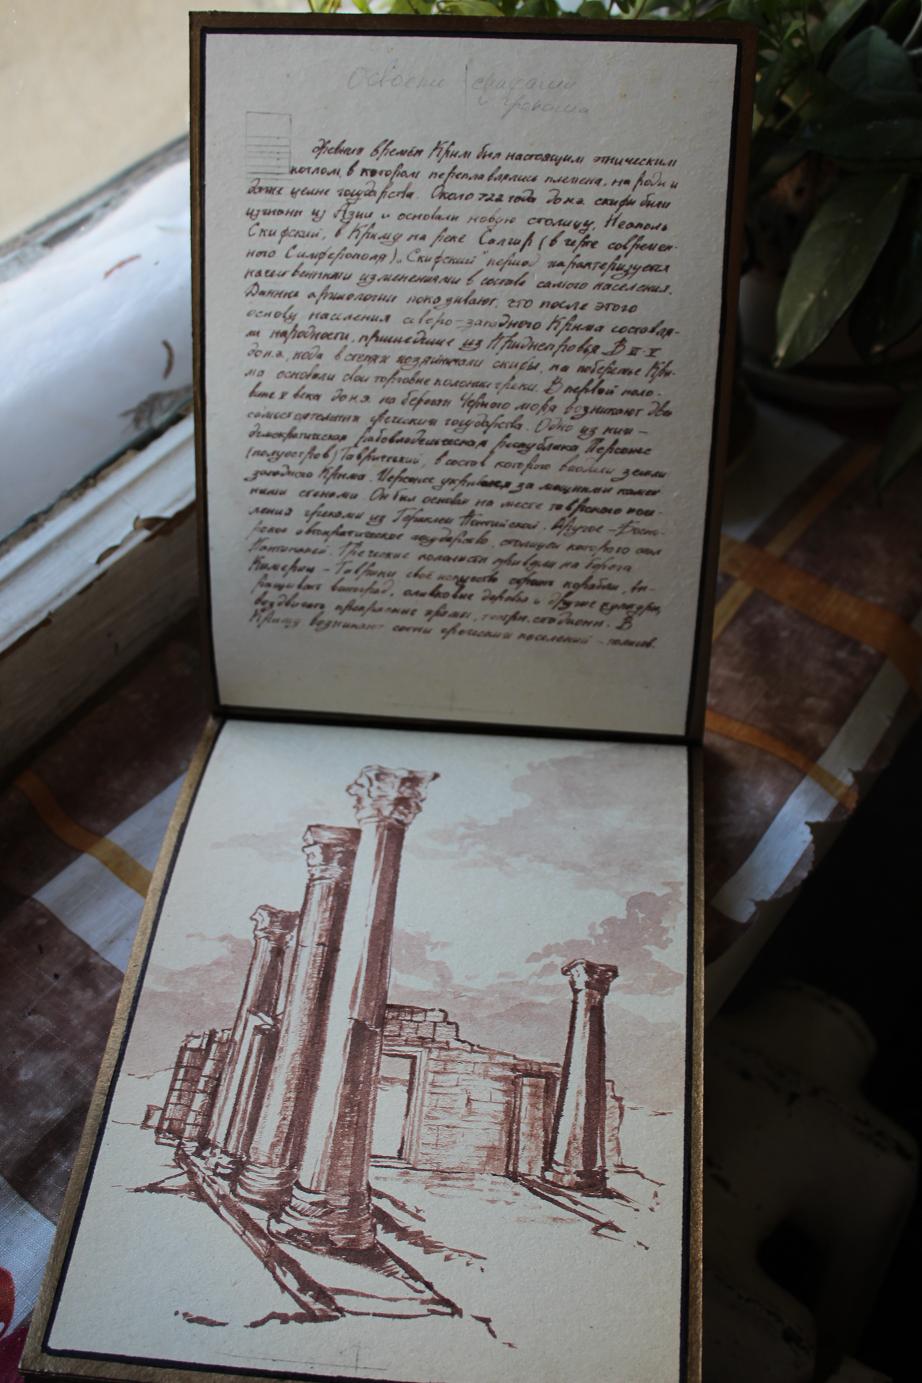 Освоение скифами
и греками
древних времён Крим был настоящим этническим
котлом, в котором переплавлялись племена, народы и
даже целые государства. Около 722 года до н.э. скифы были
изгнаны из Азии и основали новую столицу, Неаполь
Скифский, в Криму на реке Салгир (в черте современ-
ного Симферополя). „Скифский" период характеризуется
качественными изменениями в составе самого населения.
Данные археологии показывают, что после этого
основу населения северо-западного Крима составля-
ли народности, пришедшие из Приднепровья. В
до н.э., когда в степях хозяйничали скифы, на побережье Кры-
ма основали свои торговые колонии греки. В первой поло-
вине V века до н.э. на берегах Черного моря возникают два
самостоятельных греческих государства. Одно из них -
демократическая рабовладельческая республика Херсонес
(полуостров) Таврический, в состав которого входили земли
западного Крима. Херсонес укрылся за мощными камен
ными стенами. Он был основан на месте таврского посе-
ления греками из Гераклеи Понтийской. Другое - Боспо-
рское автократическое государство, столицей которого стал
Пантикапей. Греческие колонисты привезли на берега
Киммерии - Таврики своё искусство строить корабли, вы-
ращивать виноград, оливковые деревья и другие культуры,
воздвигать прекрасные храмы, театры, стадионы. В
Криму возникают сотни греческих поселений - полисов.